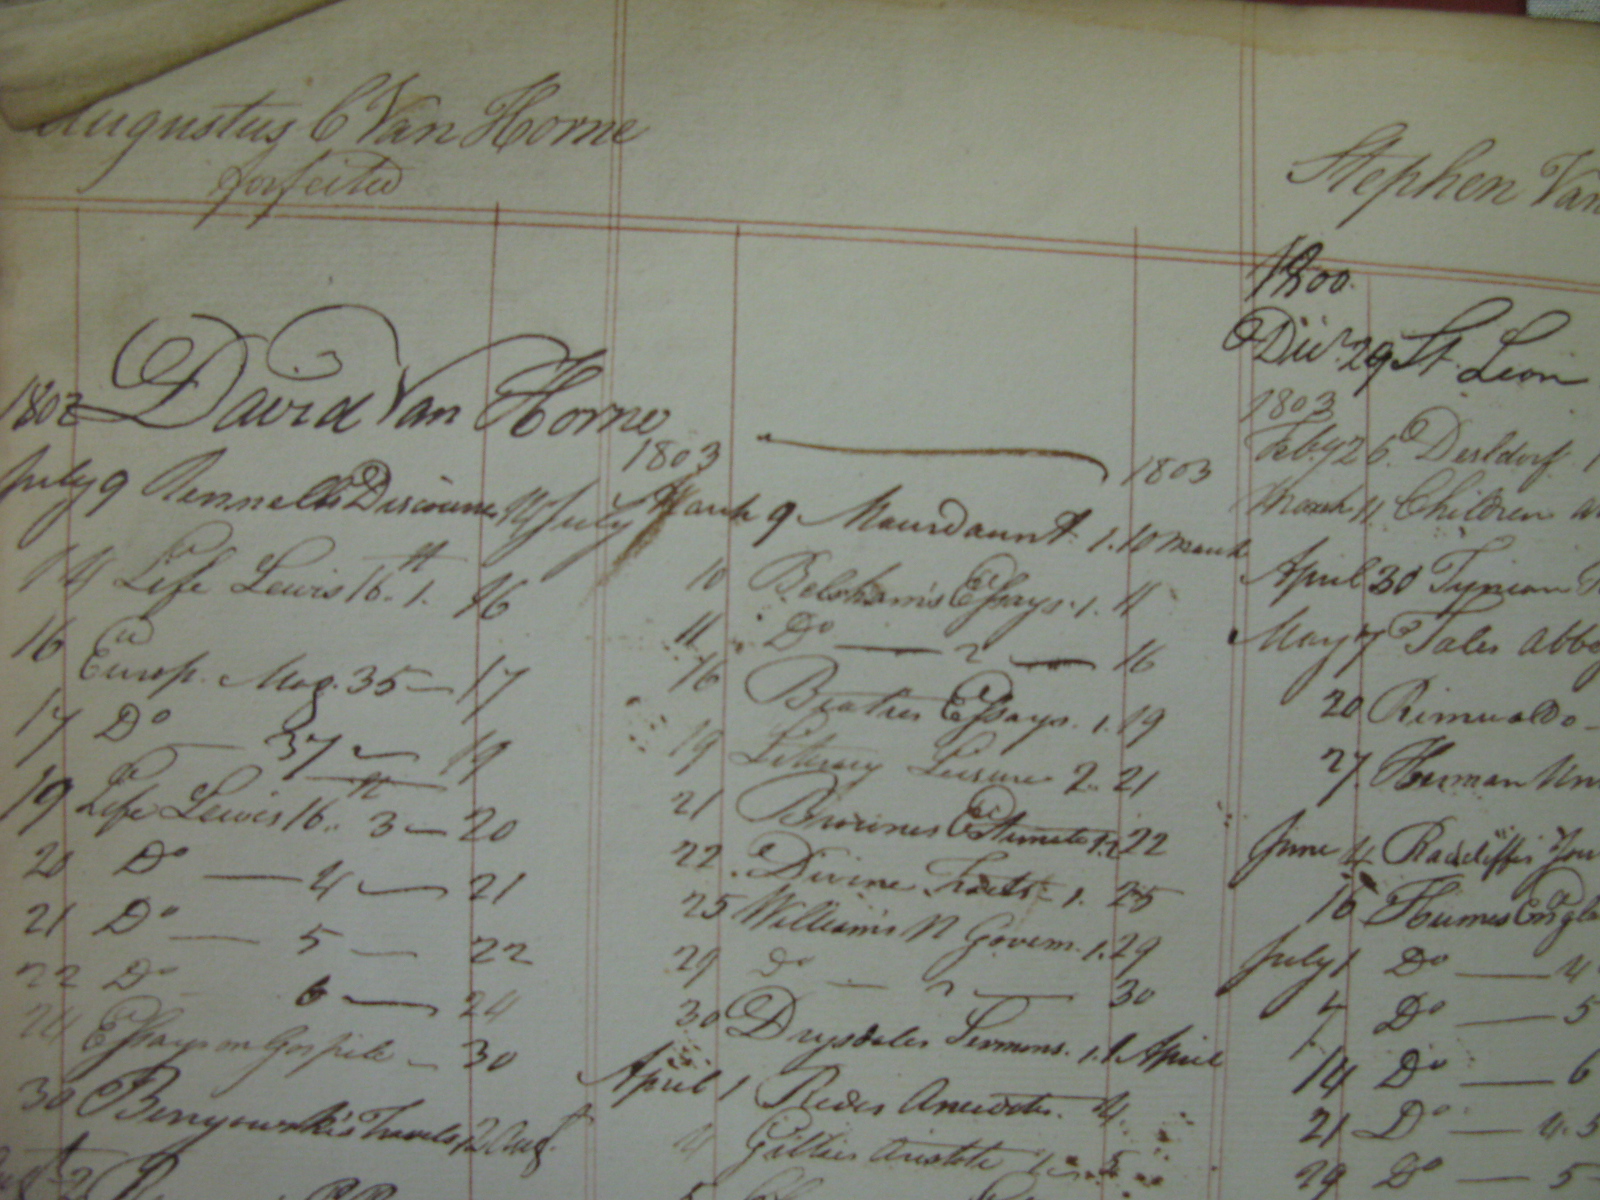 Augustus C Van Horne
forfeited
1802 David Van Horne
July 9 Rennells Discourses 14 July
14 Life Lewis 16.th 1. 16
16 Europ. Mag. 35 — 17
17 Do — 37 — 19
19 Life Lewis 16.th 3 — 20
20 Do — 4 — 21
21 Do — 5 — 22
22 Do 6 — 24
24 Essays on Gospels — 30
30 Benyowski's Travels 2 Aug.t
Aug.t 2
1803 1803
March 9 Mourdaunt. 1. 10 March
10 Belsham's Essays. 1. 11
11 Do — 2 — 16
16 Beaties Essays. 1. 19
19 Literary Leisure 2. 21
21 Browns Estimate 1.2 22
22. Divine Tracts 1. 25
25 Williams N Governm. 1. 29
29 Do — 2 — 30
30 Drysdales Sermons. 1. 1 April
April 1 Redes Anecdotes. 4
4 Gillies Aristotle 1 5
5
Stephen Van
1800.
Dec.r 29 St. Leon
1803
Feb.y 26. Dusldorf. 1
March 11. Children
April 30 Tynian
May 7 Tales Abbey
20 Rimualdo
27. Herman
June 4 Radcliffes
16 Humes Engl
July 1 Do — 4
7 Do — 5
14 Do — 6
21 Do — 4.5
29 Do — 5